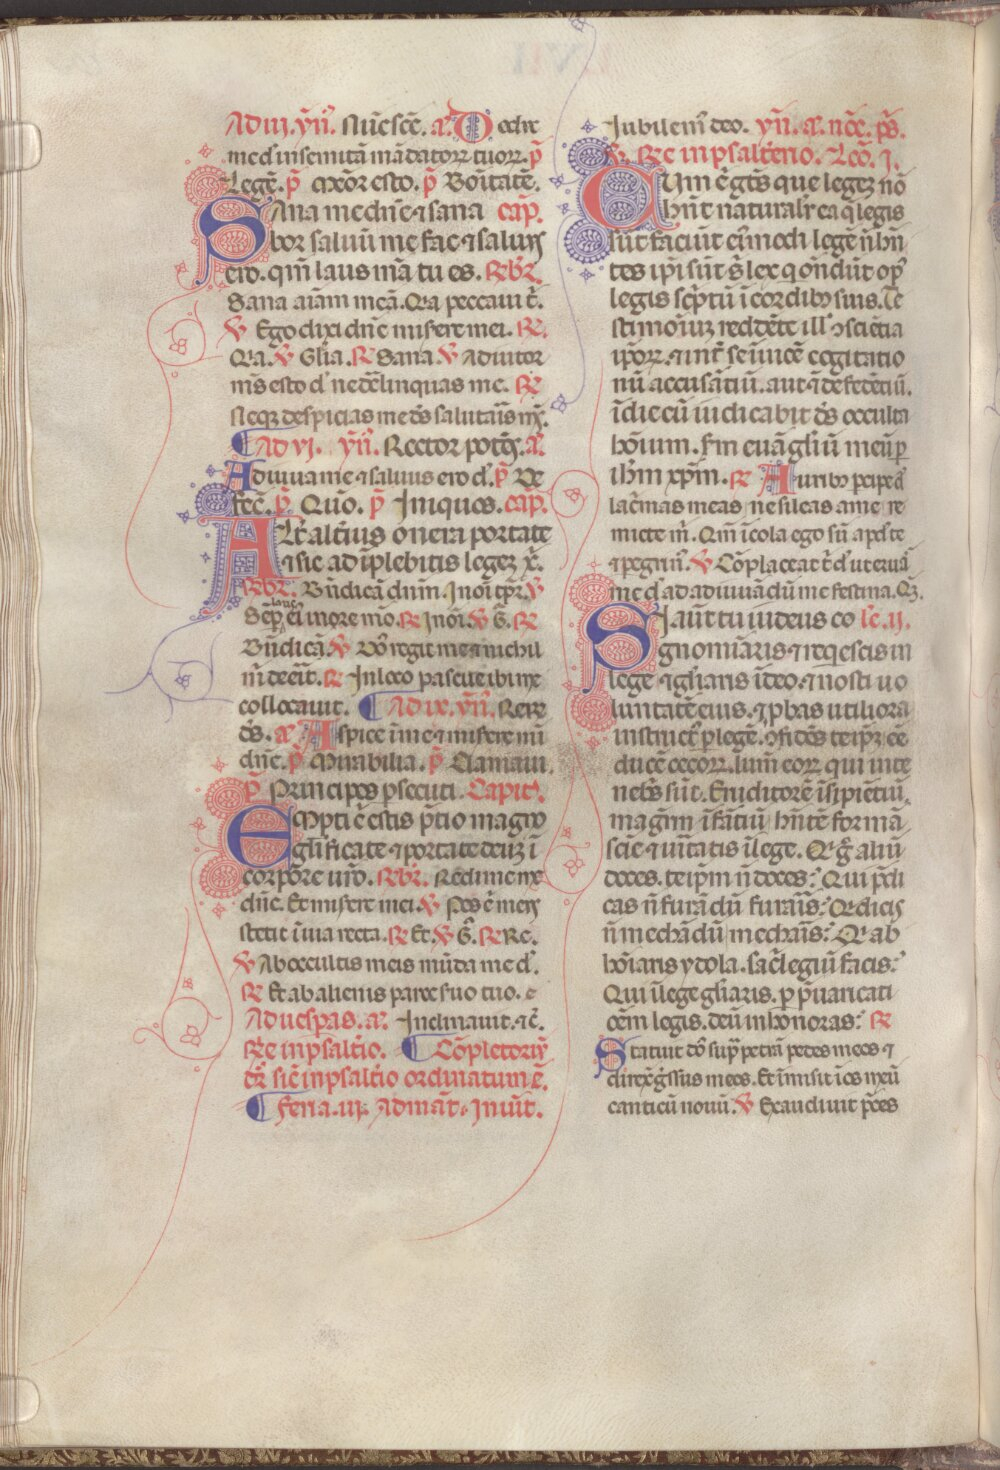 Ad iii. ym̄. Nūc scē. a͞. Deduc
me d̄ in semitā mādatorꝝ tuorꝝ. p̄
Legē. p̄ Mēor esto. p̄ Bonitatē.
Sana me dn̄e ⁊ sana cap̄.
bor saluū me fac ⁊ saluus
ero. qm̄ laus mā tu es. Rb̄r.
Sana aīam meā. Q̄a peccaui t̄.
V̄ Ego dixi dn̄e miserere mei. R̄.
Q̄a. V̄ Gl̄ia. R̄ Sana V̄ Adiutor
m̄s esto d̄ ne delīnquas me. R̄
Neqꝫ despicias me ds̄ salutaris m̄s.
Ad vi. ym̄. Rector potēs. a͞.
Adiuua me ⁊ saluus ero d̄. p̄ De
fec̄. p̄ Quō. p̄ Iniquos. cap̄.
Alt̄ alterius onera portate
⁊ sic adīplebitis legeꝫ x̄.
Rb̄r. Bn̄dicā dn̄m. In oī tpr̄. V̄
Semp̄ laus eī in ore mō. R̄ In oī. V̄ Ḡ. R̄
Bn̄dicā. V̄ Dō regit me ⁊ nichil
m̄ deerit. R̄ In loco pascue ibi me
collocauit. Ad ix. ym̄. Rerū
ds̄. a͞. Aspice ī me ⁊ miserere mī
dn̄e. p̄ Mirabilia. p̄ Clamaui.
p̄ Principes p̄secuti. Capit̄.
Empti ē estis p̄tio magno
gl̄ificate ⁊ portate deuꝫ ī
corpore vr̄o. Rb̄r. Redime me
dn̄e. Et miserere mei. V̄ Pes ē meus
stetit ī uia recta. R̄ Et. V̄ Ḡ. R̄ Re.
V̄ Ab occultis meis mūda me d̄.
R̄ Et ab alienis parce seruo tuo.
Ad uesp̄as. a͞. Inclinauit. ⁊c̄.
R̄e in psalt̄io. Cōpletoriū
dr̄ sic̄ in psalt̄io ordinatum ē.
Feria. iii. Ad mat̄. Inuit̄.
Iubilem̄ deo. ym̄. a͞. nōc̄. ps̄.
V̄. R̄e in psalterio. Lcō. i.
Cum ē gtēs que legeꝫ nō
hn̄t nāturalr̄ ea q̄ legis
sūt faciūt eī modi legē n̄ hn̄
tes ip̄i sūt s̄ lex q ondūt op̄
legis sc̄ptū ī cordibꝰ suis. Te
stimoniuꝫ reddēte ill̄ ꝯsciētia
ip̄orꝝ. ⁊ int̄ se īuicē cogitatio
nū accusātiū. aut ē defedētiū.
ī die cū iudicabit ds̄ occulta
hōium. s̄m euāgl̄iū meū p̄
ih̄m xp̄m. R̄ Auribꝰ pcipe d̄
lac̄mas meas ne sileas a me re
micte m̄. Qm̄ īcola ego sū apd̄ te
⁊ pegrin̄. V̄ Cōplaceat t̄ d̄ ut eruā
me d̄ ad adiuuādū me festina. Qm̄.
Si aūt tu iudeus co lc̄. ii.
gnomīaris ⁊ reqescis in
lege ⁊ gl̄iaris ī deo. ⁊ nosti uo
luntatē eius. ⁊ pbas utiliora
instruct̄ p legē. ꝯfidēs te ip̄ꝫ eē
ducē cecorꝝ. lum̄ eorꝝ qui ī te
nebꝭ sūt. Eruditorē īsipiētiū.
magr̄m īfātiū hn̄tē formā
sciē ⁊ uītatis ī lege. Q ḡ aliū
doces. te ip̄m n̄ doces: Qui p̄di
cas n̄ furādū furaris: Q dicis
n̄ mechādū mecharis: Q ab
hoīaris ydola. sac̄legiū facis:
Qui ī lege gl̄iaris. p p̄uaricati
oēm legis. deū inhonoras: R̄
Statuit dō supᵃ petrā pedes meos ⁊
direx̄ gr̄ssus meos. Et īmisit ī os meū
canticū nouū. V̄ Exaudiuit p̄ces